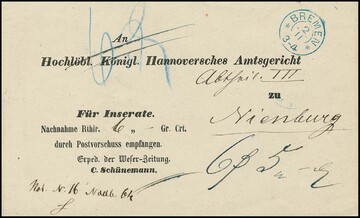 BREMEN
2
11
3-4
An
Hochlöbl. Königl. Hannoversches Amtsgericht
Abtheil. III
zu
Nienburg
Für Inserate.
Nachnahme Rthlr. 6 „ - Gr. Crt.
durch Postvorschuss empfangen.
Exped. der Weser-Zeitung.
C. Schünemann.
6 5
Not. N. 16